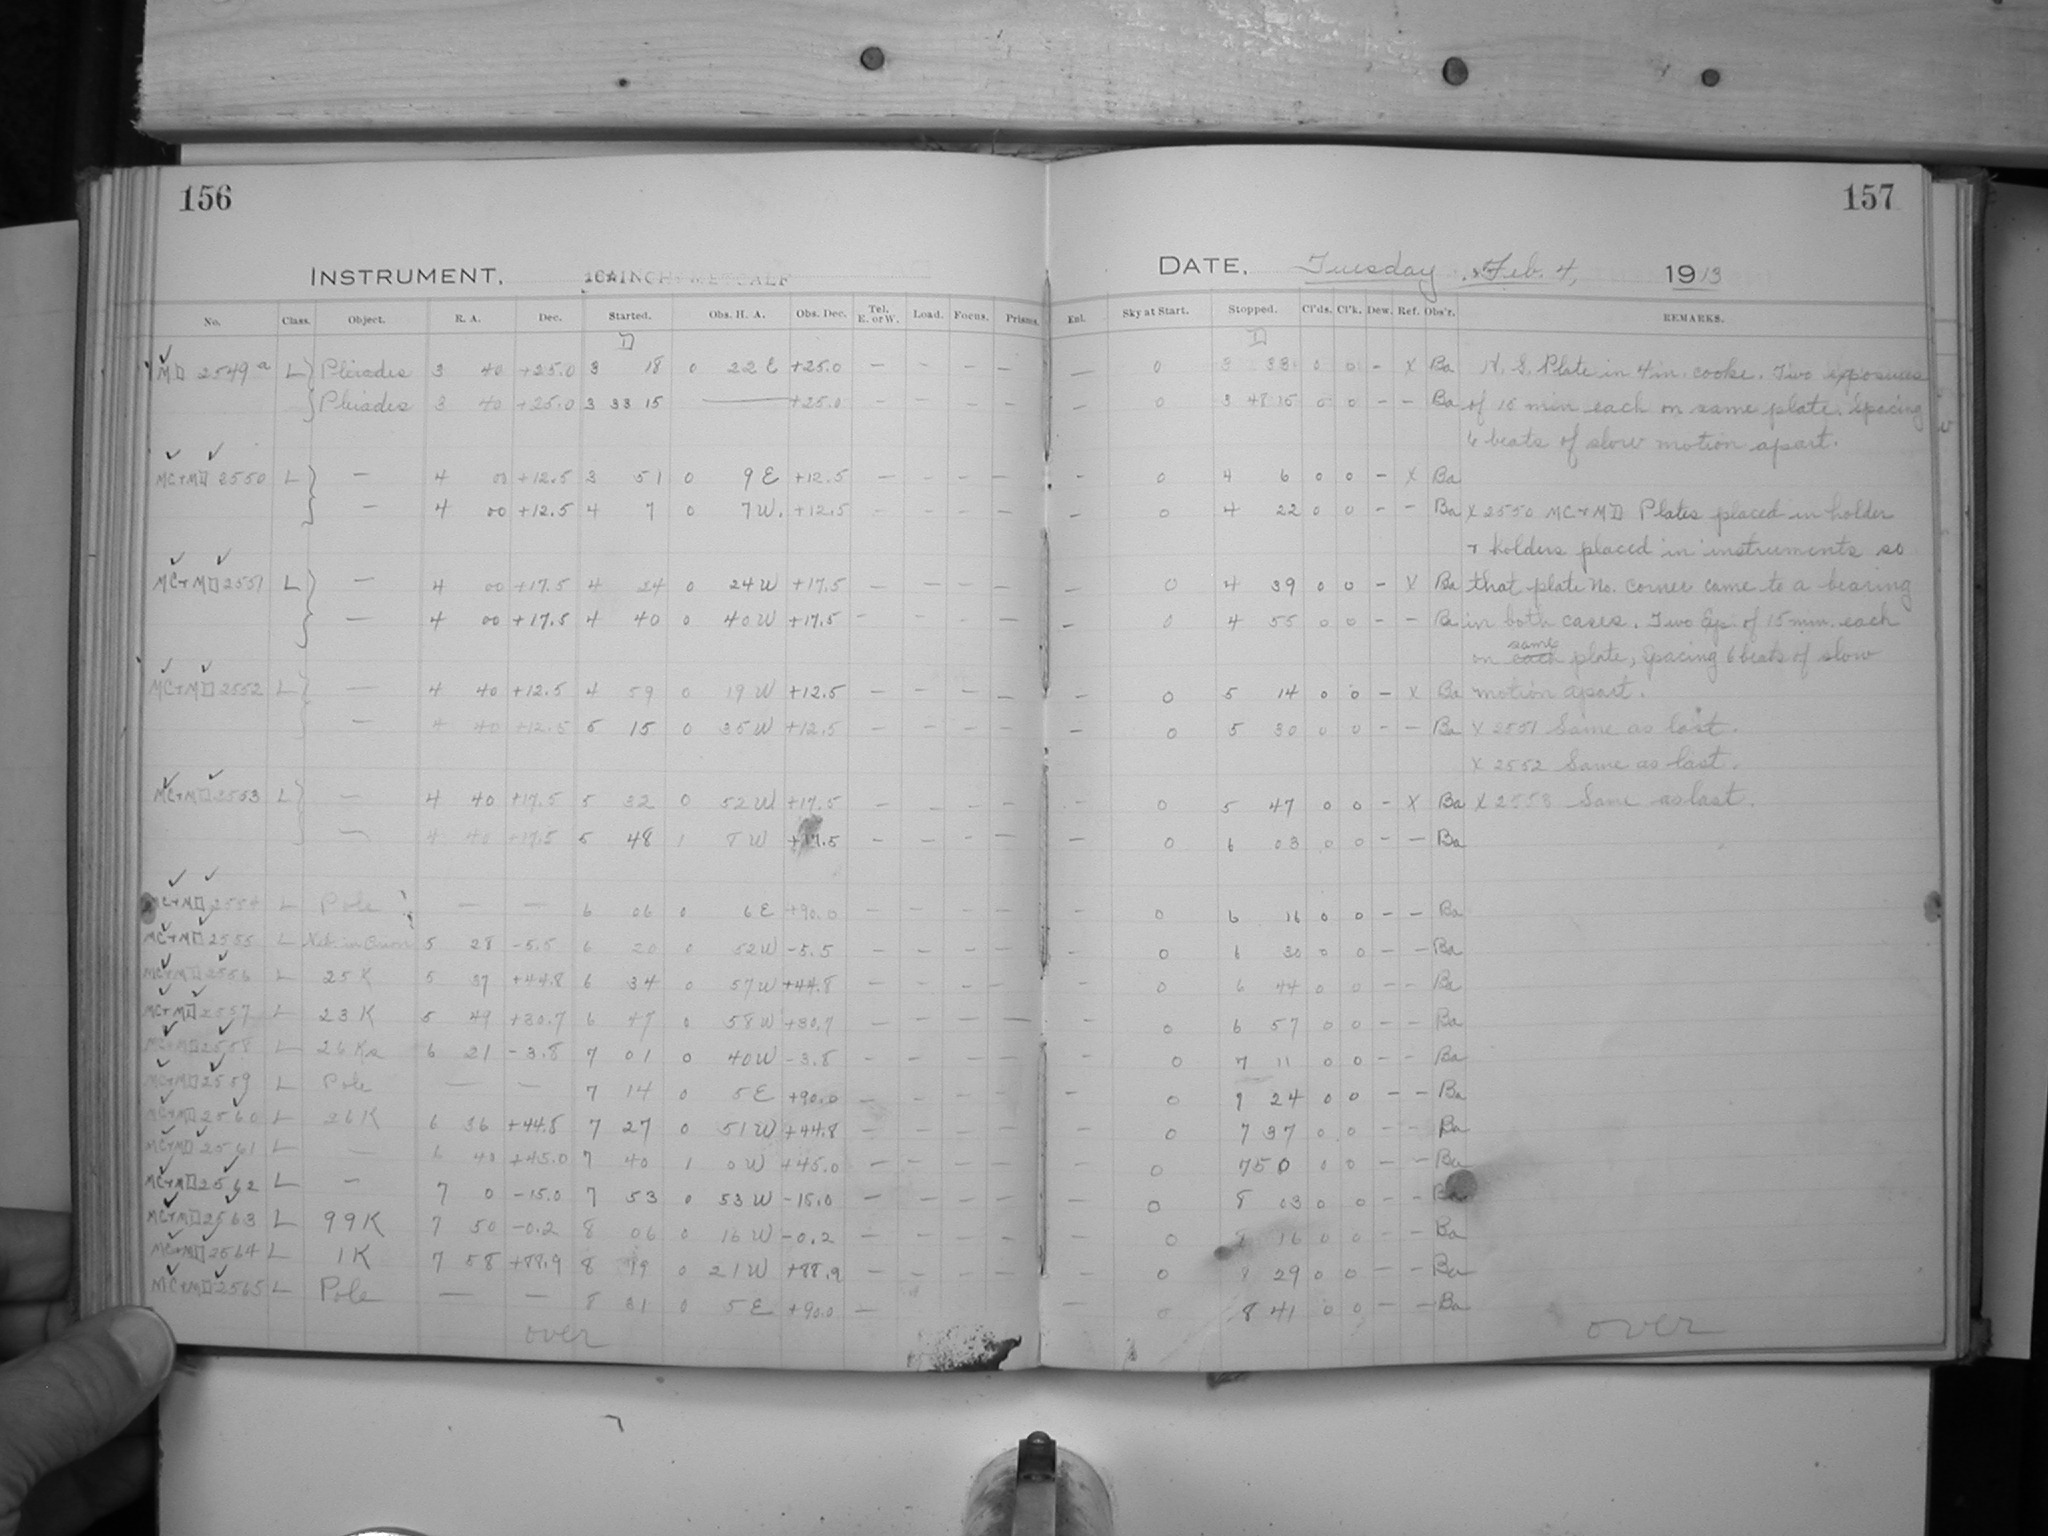 156
INSTRUMENT, 16 INCH METCALF
No. Class. Object. R. A. Dec. Started. Obs. H. A. Obs. Dec. Tel. E. or W. Load. Focus. Prisms.
MD 2549a L Pleiades 3 40 +25.0 3 18 0 22 E +25.0 — — — —
Pleiades 3 40 +25.0 3 33 15 — +25.0 — — — —
MC+MD 2550 L — 4 00 +12.5 3 51 0 9 E +12.5 — — — —
— 4 00 +12.5 4 7 0 7 W. +12.5 — — — —
MC+MD 2551 L — 4 00 +17.5 4 24 0 24 W +17.5 — — — —
— 4 00 +17.5 4 40 0 40 W +17.5 — — — —
MC+MD 2552 L — 4 40 +12.5 4 59 0 19 W +12.5 — — — —
— 4 40 +12.5 5 15 0 35 W +12.5 — — — —
MC+MD 2553 L — 4 40 +17.5 5 32 0 52 W +17.5 — — — —
— 4 40 +17.5 5 48 1 8 W +17.5 — — — —
MC+MD 2554 L Pole — — 6 06 0 6 E +90.0 — — — —
MC+MD 2555 L Neb. in Orion 5 28 -5.5 6 20 0 52 W -5.5 — — — —
MC+MD 2556 L 25 K 5 37 +44.8 6 34 0 57 W +44.8 — — — —
MC+MD 2557 L 23 K 5 49 +30.7 6 47 0 58 W +30.7 — — — —
MC+MD 2558 L 26 Ka 6 21 -3.8 7 01 0 40 W -3.8 — — — —
MC+MD 2559 L Pole — — 7 14 0 5 E +90.0 — — — —
MC+MD 2560 L 26 K 6 36 +44.8 7 27 0 51 W +44.8 — — — —
MC+MD 2561 L — 6 40 +45.0 7 40 1 0 W +45.0 — — — —
MC+MD 2562 L — 7 0 -15.0 7 53 0 53 W -15.0 — — — —
MC+MD 2563 L 99 K 7 50 -0.2 8 06 0 16 W -0.2 — — — —
MC+MD 2564 L 1 K 7 58 +88.9 8 19 0 21 W +88.9 — — — —
MC+MD 2565 L Pole — — 8 31 0 5 E +90.0 —
over
157
DATE, Tuesday, Feb. 4, 1913
Enl. Sky at Start. Stopped. Cl'ds. Cl'k. Dew. Ref. Obs'r. REMARKS.
— 0 3 33 0 0 - X Ba H. S. Plate in 4 in. cooke. Two exposures
— 0 3 48 15 0 0 - - Ba of 15 min each on same plate. Spacing
6 beats of slow motion apart.
— 0 4 6 0 0 - X Ba
— 0 4 22 0 0 - - Ba X 2550 MC+MD Plates placed in holder
+ holders placed in instruments so
— 0 4 39 0 0 - X Ba that plate No. corner came to a bearing
— 0 4 55 0 0 - - Ba in both cases. Two Exp. of 15 min. each
on each same plate, spacing 6 beats of slow
— 0 5 14 0 0 - X Ba motion apart.
— 0 5 30 0 0 - - Ba X 2551 Same as last.
X 2552 Same as last.
— 0 5 47 0 0 - X Ba X 2553 Same as last.
— 0 6 03 0 0 - - Ba
— 0 6 16 0 0 - - Ba
— 0 6 30 0 0 - - Ba
— 0 6 44 0 0 - - Ba
— 0 6 57 0 0 - - Ba
— 0 7 11 0 0 - - Ba
— 0 7 24 0 0 - - Ba
— 0 7 37 0 0 - - Ba
— 0 7 50 0 0 - - Ba
— 0 8 03 0 0 - - Ba
— 0 8 16 0 0 - - Ba
— 0 8 29 0 0 - - Ba
— 0 8 41 0 0 - - Ba
over